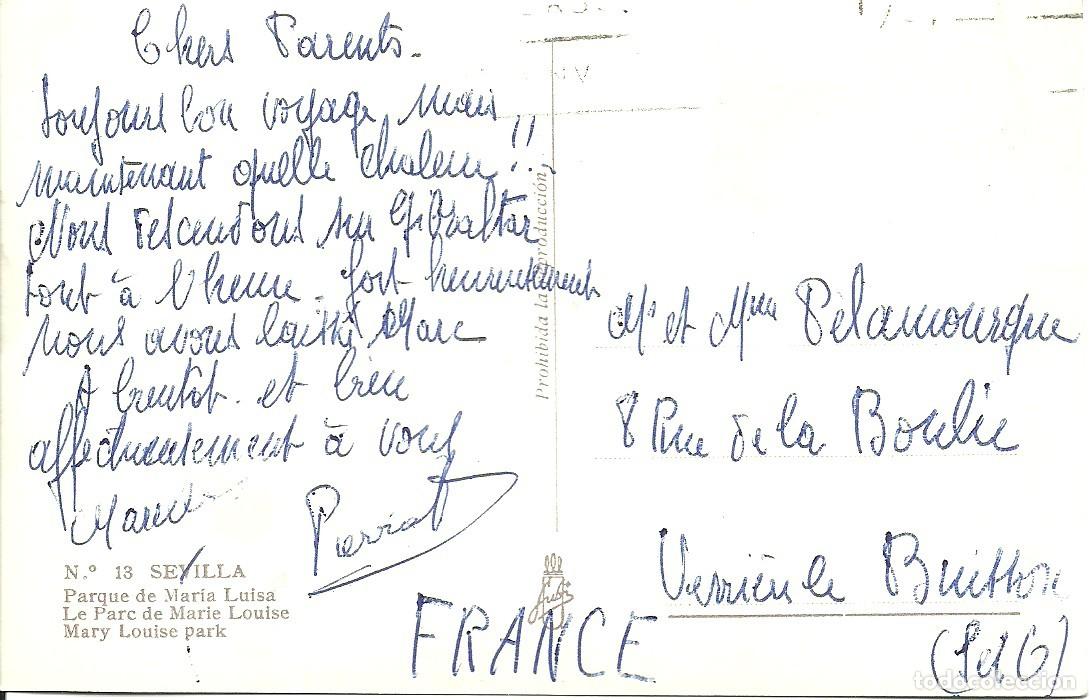 Chers Parents -
Toujours bon voyage, Mais
maintenant quelle chaleur !!
Nous descendons sur Gibraltar
tout à l'heure - fort heureusement
nous avons laissé Marc
A bientôt - et bien
affectueusement à vous
Pierrot
N.º 13 SEVILLA
Parque de María Luisa
Le Parc de Marie Louise
Mary Louise park
Prohibida la reproducción
Mr et Mme Pelamourgue
8 Rue de la Boulie
Verrières le Buisson
FRANCE
(S et O)
todocoleccion